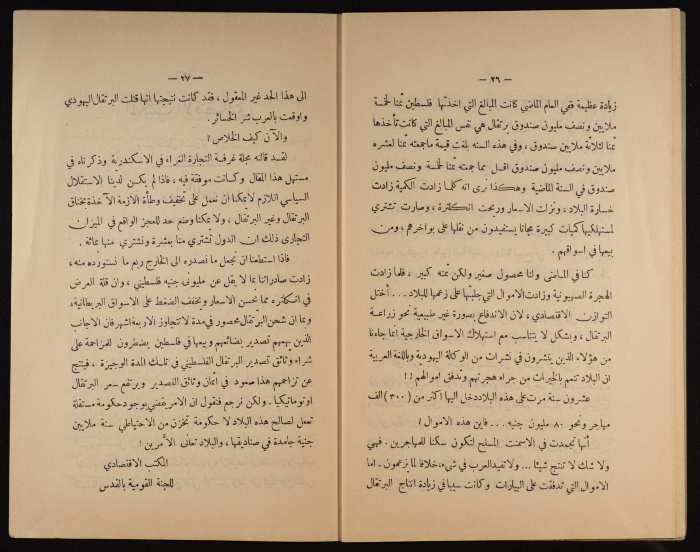 — ٢٦ —
زيادة عظيمة ففي العام الماضي كانت المبالغ التي اخذتها فلسطين ثمنا لخمسة
ملايين ونصف مليون صندوق برتقال هي نفس المبالغ التي كانت تأخذها
ثمنا لثلاثة ملايين صندوق، وفي هذه السنة بلغت قيمة ما جمعته ثمنا لعشرة
ملايين ونصف مليون صندوق اقل مما جمعته ثمنا لخمسة ونصف مليون
صندوق في السنة الماضية وهكذا نرى انه كلما زادت الكمية زادت
خسارة البلاد، ونزلت الاسعار وربحت انكلترة، وصارت تشتري
لمستهلكيها كميات كبيرة مجانا يستفيدون من نقلها على بواخرهم، ومن
بيعها في اسواقهم.
كنا في الماضي ولنا محصول صغير ولكن ثمنه كبير، فلما زادت
الهجرة الصهيونية وزادت الاموال التي جلبتها على زعمها للبلاد... أختل
التوازن الاقتصادي، لان الاندفاع بصورة غير طبيعية نحو زراعة
البرتقال، وبشكل لا يتناسب مع استهلاك الاسواق الخارجية انما جاءنا
من هؤلاء الذين ينشرون في نشرات من الوكالة اليهودية وباللغة العربية
ان البلاد تنعم بالخيرات من جراء هجرتهم وتدفق اموالهم!!
عشرون سنة مرت على هذه البلاد دخل اليها اكثر من (٣٠٠) الف
مهاجر ونحو ٨٠ مليون جنيه... فاين هذه الاموال؟
أنها تجمدت في الاسمنت المسلح لتكون سكنا للمهاجرين. فهي
ولا شك لا تنتج شيئا... ولا تفيد العرب في شيء، خلافا لما يزعمون. اما
الاموال التي تدفقت على البيارات وكانت سببا في زيادة انتاج البرتقال
— ٢٧ —
الى هذا الحد غير المعقول، فقد كانت نتيجتها انها قتلت البرتقال اليهودي
واوقعت بالعرب شر الخسائر.
والآن كيف الخلاص؟
لقد قالته مجلة غرفة التجارة الغراء في الاسكندرية وذكرناه في
مستهل هذا المقال وكانت موفقة فيه، فاذا لم يكن لدينا الاستقلال
السياسي اللازم لا يمكننا ان نعمل على تخفيف وطأة الازمة الآخذة بخناق
البرتقال وغير البرتقال، ولا يمكننا وضع حد للعجز الواقع في الميزان
التجاري ذلك ان الدول تشتري منا بعشرة ونشتري منها بمائة.
فاذا استطعنا ان نجعل ما نصدره الى الخارج ربع ما نستورده منه،
زادت صادراتنا بما لا يقل عن مليوني جنيه فلسطيني، وان قلة العرض
في انكلتره مما يحسن الاسعار ويخفف الضغط على الاسواق البريطانية،
وبما ان شحن البرتقال محصور في مدة لا تتجاوز الاربعة اشهر فان الاجانب
الذين يهمهم تصدير بضائعهم وبيعها في فلسطين يضطرون للمزاحمة على
شراء وثائق تصدير البرتقال الفلسطيني في تلك المدة الوجيزة، فينتج
عن تزاحمهم هذا صعود في اثمان وثائق التصدير ويرتفع سعر البرتقال
اوتوماتيكيا. ولكن نرجع فنقول ان الامر يقضي بوجود حكومة مستقلة
تعمل لصالح هذه البلاد لا حكومة تخزن من الاحتياطي ستة ملايين
جنية جامدة في صناديقها، والبلاد تعاني الأمرين!
المكتب الاقتصادي
للجنة القومية بالقدس